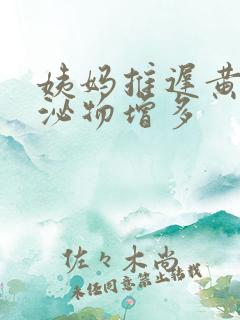 姨妈推遲黄
泌物增多
佐々木尚
未任同意禁止转载